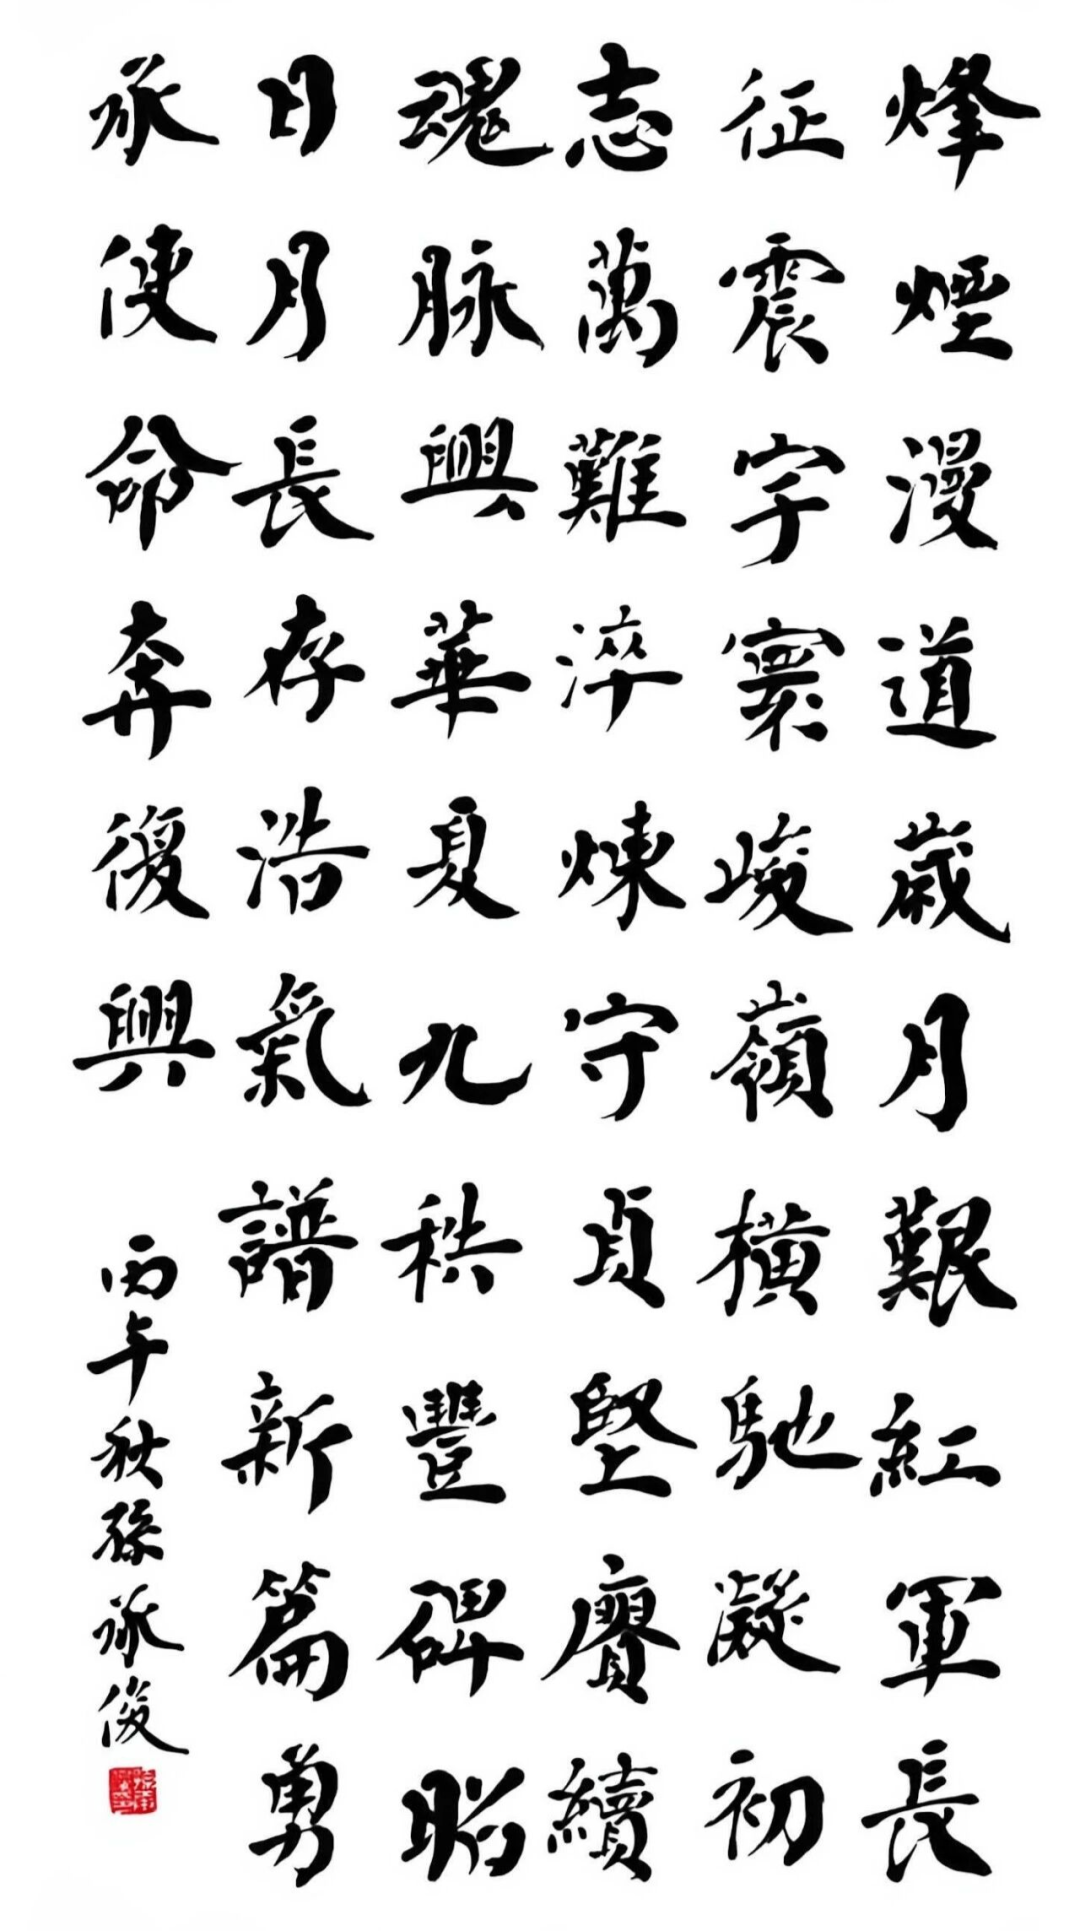 烽煙漫道歲月艱紅軍長
征震宇寰峻嶺橫馳凝初
志萬難淬煉守貞堅賡續
魂脉興華夏九秩豐碑昭
日月長存浩氣譜新篇勇
承使命奔復興
丙午秋孫承俊